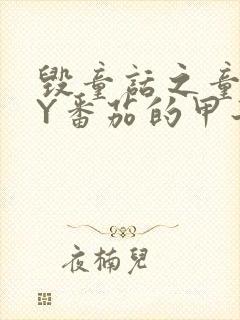 毁童话之童
Y番茄的甲
夜楠兒